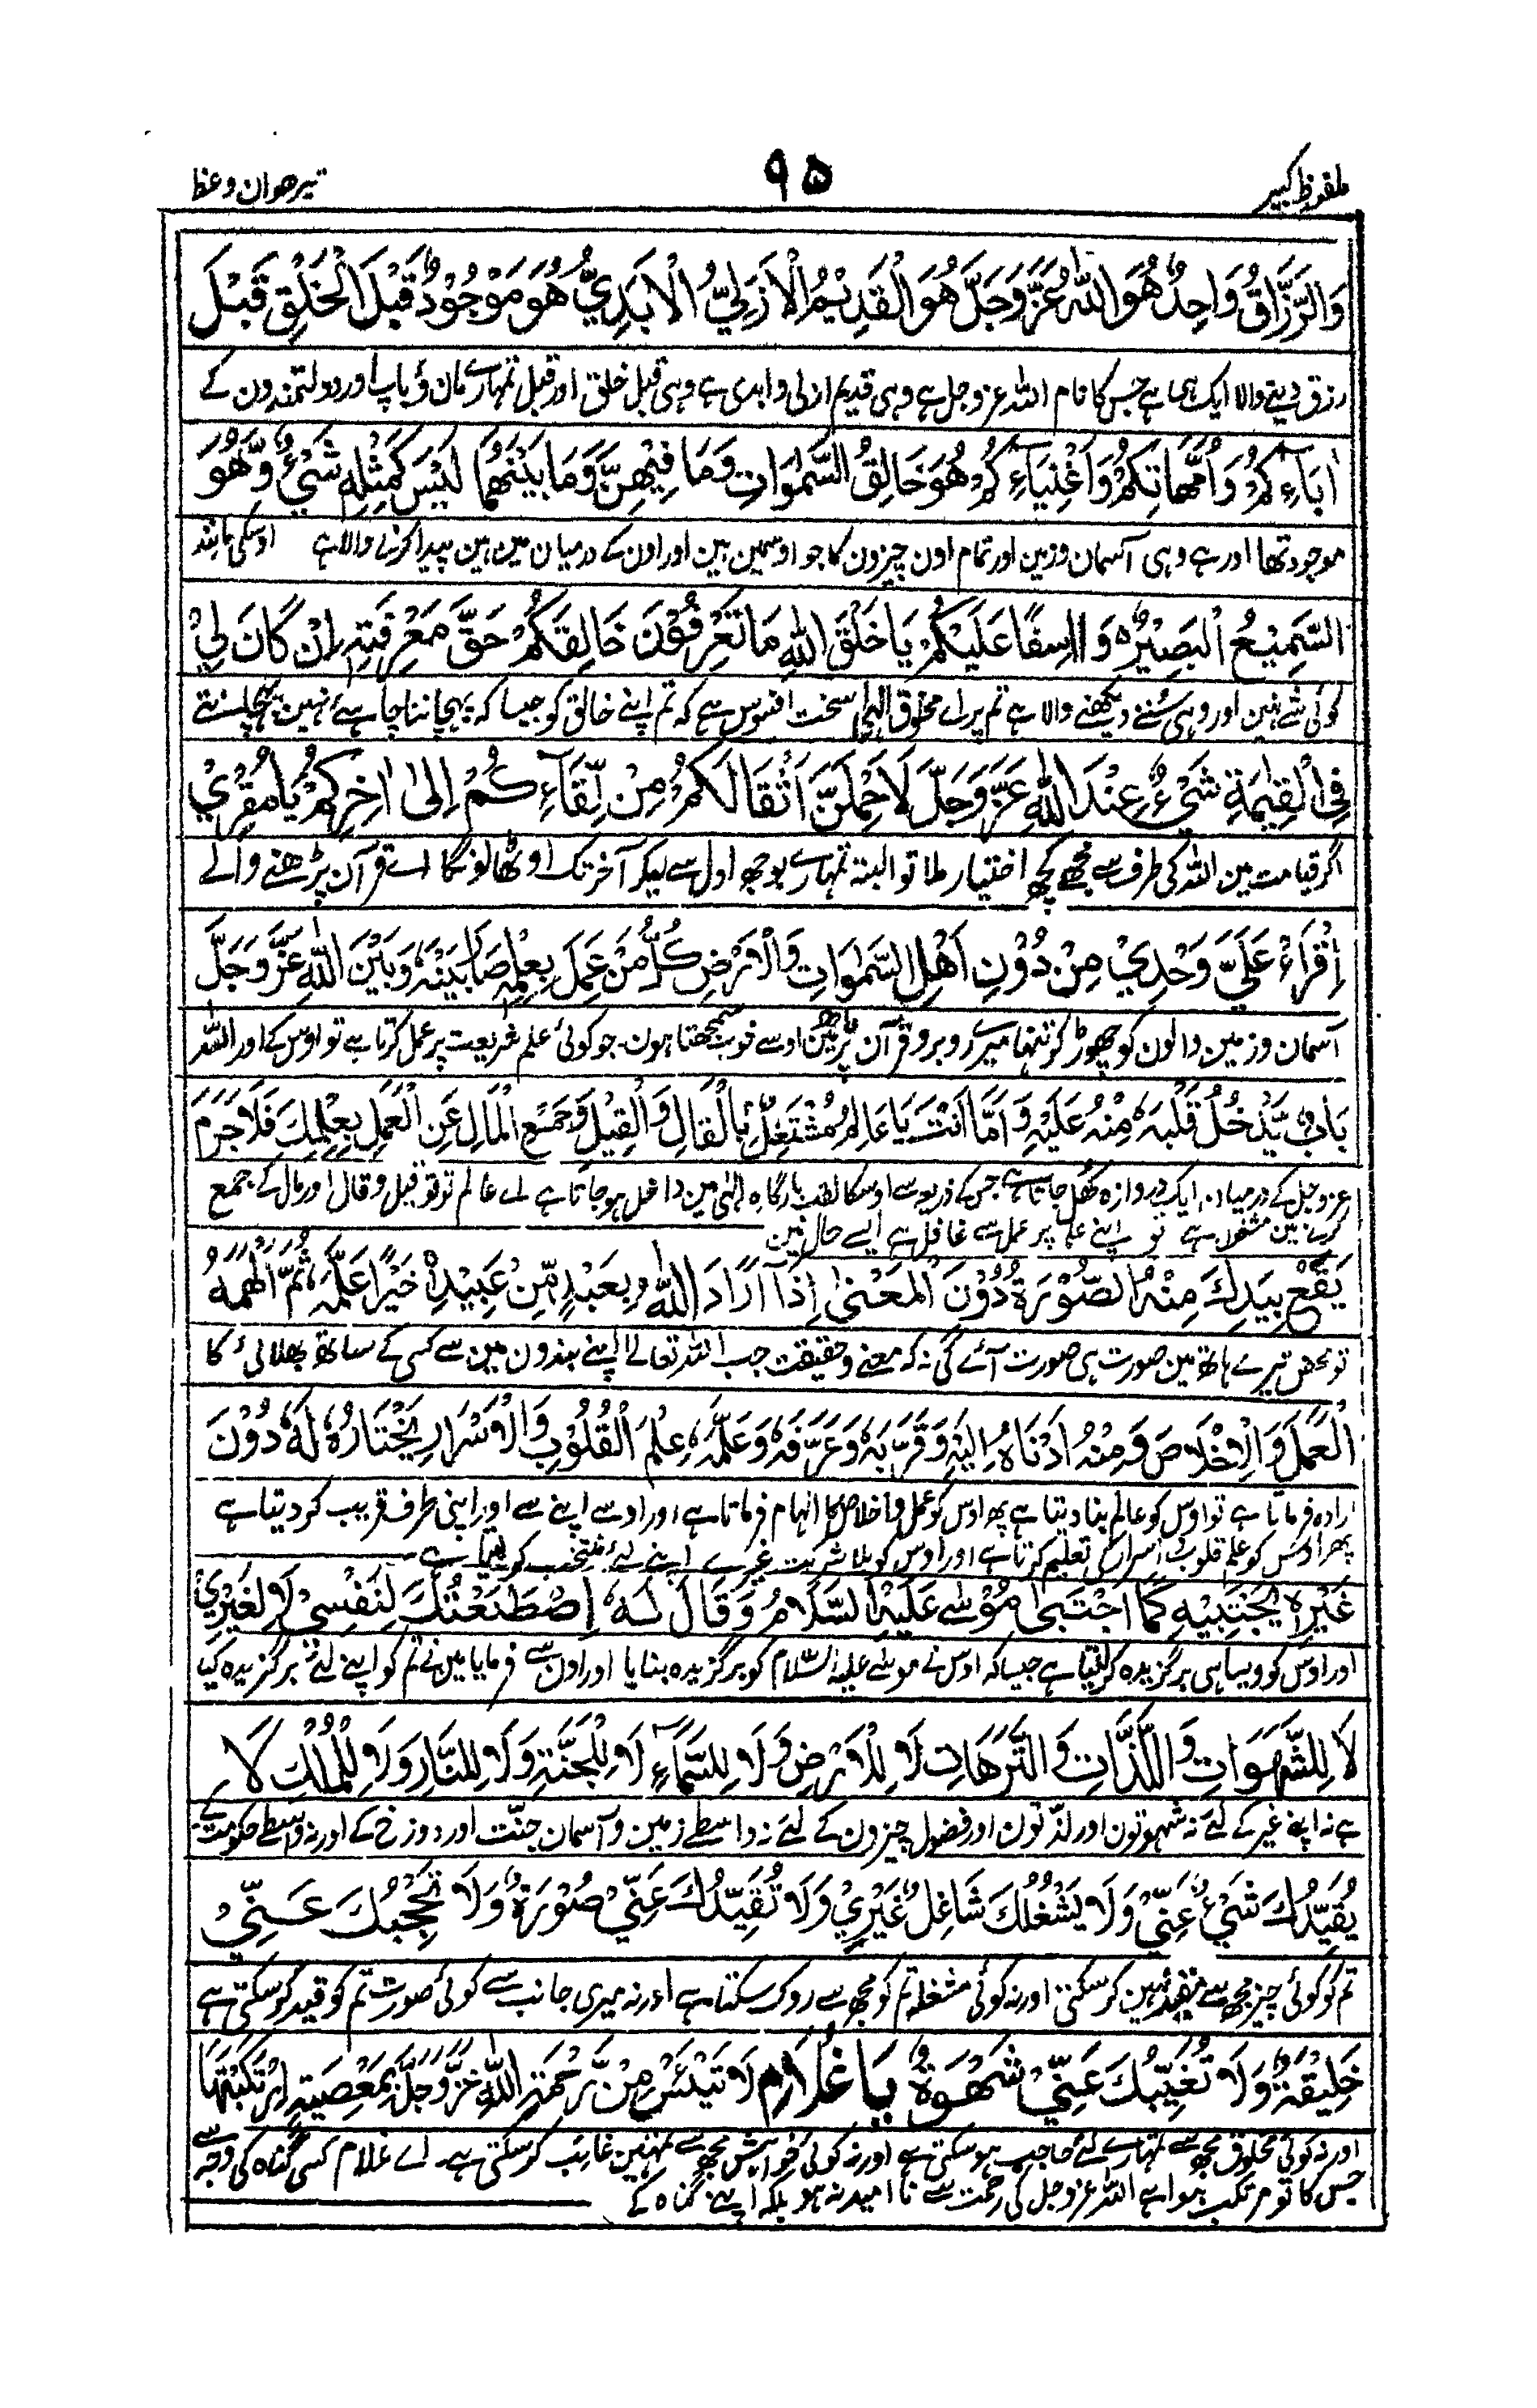 ملفوظ کبیر
۹۵
تیرھوان وعظ
وَالرَّزَّاقُ وَاحِدٌ هُوَ اللّٰهُ عَزَّ وَجَلَّ هُوَ الْقَدِيْمُ الْاَزَلِيُّ الْاَبَدِيُّ هُوَ مَوْجُوْدٌ قَبْلَ الْخَلْقِ قَبْلَ
رزق دینے والا ایک ہی ہے جس کا نام اللہ عزوجل ہے وہی قدیم ازلی وابدی ہے وہی قبل خلق اور قبل تمہارے مان و باپ اور دولتمندون کے
اٰبَآءِكُمْ وَاُمَّهَاتِكُمْ وَاَغْنِيَآءِكُمْ هُوَ خَالِقُ السَّمٰوَاتِ وَمَا فِيْهِنَّ وَمَا بَيْنَهُمَا لَيْسَ كَمِثْلِهٖ شَيْءٌ وَّهُوَ
موجود تھا اور ہے وہی آسمان وزمین اور تمام اون چیزون کا جو اوسمین ہین اور اون کے درمیان مین ہین پیدا کرنے والا ہے اوسکی مانند
السَّمِيْعُ الْبَصِيْرُه وَااَسِفًا عَلَيْكُمْ يَاخَلْقَ اللّٰهِ مَا تَعْرِفُوْنَ خَالِقَكُمْ حَقَّ مَعْرِفَتِهٖ اِنْ كَانَ لِيْ
کوئی شے نہین اور وہی سننے دیکھنے والا ہے تم پر اے مخلوق الہی سخت افسوس ہے کہ تم اپنے خالق کو جیسا کہ پہچاننا چاہئے نہین پہچانتے
فِي الْقِيٰمَةِ شَيْءٌ عِنْدَ اللّٰهِ عَزَّ وَجَلَّ لَاَحْمِلَنَّ اَثْقَالَكُمْ مِنْ لِّقَآءِكُمْ اِلٰى اٰخِرِكُمْ يَامُقْرِيْ
اگر قیامت مین اللہ کی طرف سے مجھے کچھ اختیار ملا تو البتہ تمہارے بوجھ اول سے لیکر آخر تک اوٹھالونگا اے قرآن پڑھنے والے
اِقْرَاْ عَلَيَّ وَحْدِيْ مِنْ دُوْنِ اَهْلِ السَّمٰوَاتِ وَالْاَرْضِ كُلُّ مَنْ عَمِلَ بِعِلْمِهٖ صَا بَيْنَهٗ وَبَيْنَ اللّٰهِ عَزَّ وَجَلَّ
آسمان وزمین والون کو چھوڑ کر تنہا میرے روبرو قرآن پڑھ مین اوسے خوب سمجھتا ہون۔ جو کوئی علم شریعت پر عمل کرتا ہے تو اوس کے اور اللہ
بَابٌ يَّدْخُلُ قَلْبُهٗ مِنْهُ عَلَيْهِ وَاَمَّا اَنْتَ يَاعَالِمُ مُشْتَغِلٌ بِالْقَالِ وَالْقِيْلِ وَجَمْعِ الْمَالِ عَنِ الْعَمَلِ بِعِلْمِكَ فَلَاجَرَمَ
عزوجل کے درمیان ایک دروازہ کھل جاتا ہے جس کے ذریعہ سے اوسکا قلب بارگاہ الہٰی مین داخل ہوجاتا ہے اے عالم تو تو قیل وقال اور مال کے جمع
کرنے مین مشغول ہے تو اپنے علم پر عمل سے غافل ہے ایسے حال مین
يَقَعُ بِيَدِكَ مِنْهُ الصُّوْرَةُ دُوْنَ الْمَعْنٰى اِذَآ اَرَادَ اللّٰهُ بِعَبْدٍ مِّنْ عَبِيْدِهٖ خَيْرًا عَلَّمَهٗ ثُمَّ اَلْهَمَهُ
تو محض تیرے ہاتھ مین صورت ہی صورت آئے گی نہ کہ معنے وحقیقت جب اللہ تعالےٰ اپنے بندون مین سے کسی کے ساتھ بھلائی کا
الْعَمَلَ وَالْاِخْلَاصَ وَمِنْهُ اَدْنَاهُ اِلَيْهِ وَقَرَّبَهٗ وَعَرَّفَهٗ وَعَلَّمَهٗ عِلْمَ الْقُلُوْبِ وَالْاَسْرَارِ يَخْتَارُهٗ لَهٗ دُوْنَ
ارادہ فرماتا ہے تو اوس کو عالم بنادیتا ہے پھر اوس کو عمل واخلاص کا الہام فرماتا ہے اور اوسے اپنے سے اور اپنی طرف قریب کردیتا ہے
پھر اوس کو علم قلوب و اسرار کی تعلیم کرتا ہے اور اوس کو بلا شرکت غیرے اپنے لئے منتخب کرلیتا ہے
غَيْرِهٖ يَجْتَبِيْهِ كَمَا اجْتَبٰى مُوْسٰى عَلَيْهِ السَّلَامُ وَقَالَ لَهٗ اِصْطَنَعْتُكَ لِنَفْسِيْ لَا لِغَيْرِيْ
اور اوس کو ویسا ہی برگزیدہ کرلیتا ہے جیسا کہ اوس نے موسےٰ علیہ السلام کو برگزیدہ بنایا اور اون سے فرمایا مین نے تم کو اپنے لئے برگزیدہ کیا
لَا لِلشَّهَوَاتِ وَاللَّذَّاتِ وَالتُّرَّهَاتِ لَا لِلْاَرْضِ وَلَا لِلسَّمَآءِ لَا لِلْجَنَّةِ وَلَا لِلنَّارِ وَلَا لِلْمُلْكِ لَا
ہے نہ اپنے غیر کے لئے نہ شہوتون اور لذتون اور فضول چیزون کے لئے نہ واسطے زمین و آسمان جنّت اور دوزخ کے اور نہ واسطے حکومت کے
يُقَيِّدُكَ شَيْءٌ عَنِّيْ وَلَا يَشْغُلُكَ شَاغِلٌ غَيْرِيْ وَلَا تُقَيِّدُكَ عَنِّيْ صُوْرَةٌ وَلَا تَحْجُبُكَ عَنِّيْ
تم کو کوئی چیز مجھ سے مقید نہین کرسکتی اور نہ کوئی مشغلہ تم کو مجھ سے روک سکتا ہے اور نہ میری جانب سے کوئی صورت تم کو قید کرسکتی ہے
خَلِيْقَةٌ وَلَا تُغَيِّبُكَ عَنِّيْ شَهْوَةٌ يَاغُلَامُ لَا تَيْئَسْ مِنْ رَّحْمَةِ اللّٰهِ عَزَّ وَجَلَّ بِمَعْصِيَةٍ اِرْتَكَبْتَهَا
اور نہ کوئی مخلوق مجھ سے تمہارے لئے حاجب ہوسکتی ہے اور نہ کوئی خواہش مجھ سے تمہین غائب کرسکتی ہے۔ اے غلام کسی گناہ کی وجہ سے
جس کا تو مرتکب ہوا ہے اللہ عزوجل کی رحمت سے نا امید نہ ہو بلکہ اپنے گناہ کے